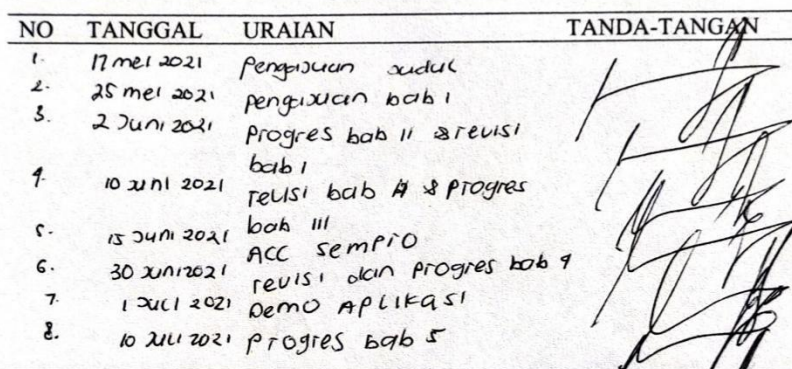 NO TANGGAL URAIAN TANDA-TANGAN
1. 17 mei 2021 Pengajuan Judul
2. 25 mei 2021 pengajuan bab 1
3. 2 Juni 2021 Progres bab II & revisi
bab 1
4. 10 Juni 2021 revisi bab & Progres
bab III
5. 15 Juni 2021 ACC Sempro
6. 30 Juni 2021 revisi dan progres bab 4
7. 1 Juli 2021 Demo APLIKASI
8. 10 Juli 2021 Progres bab 5